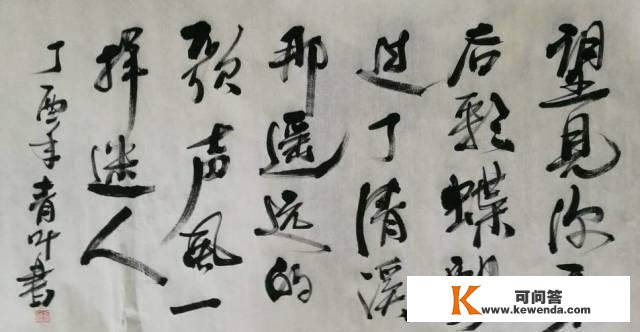 望見你
后彩蝶
过了清溪
那遥远的
歌声风一
样迷人
丁酉年青叶書
K 可问答
www.kewenda.com